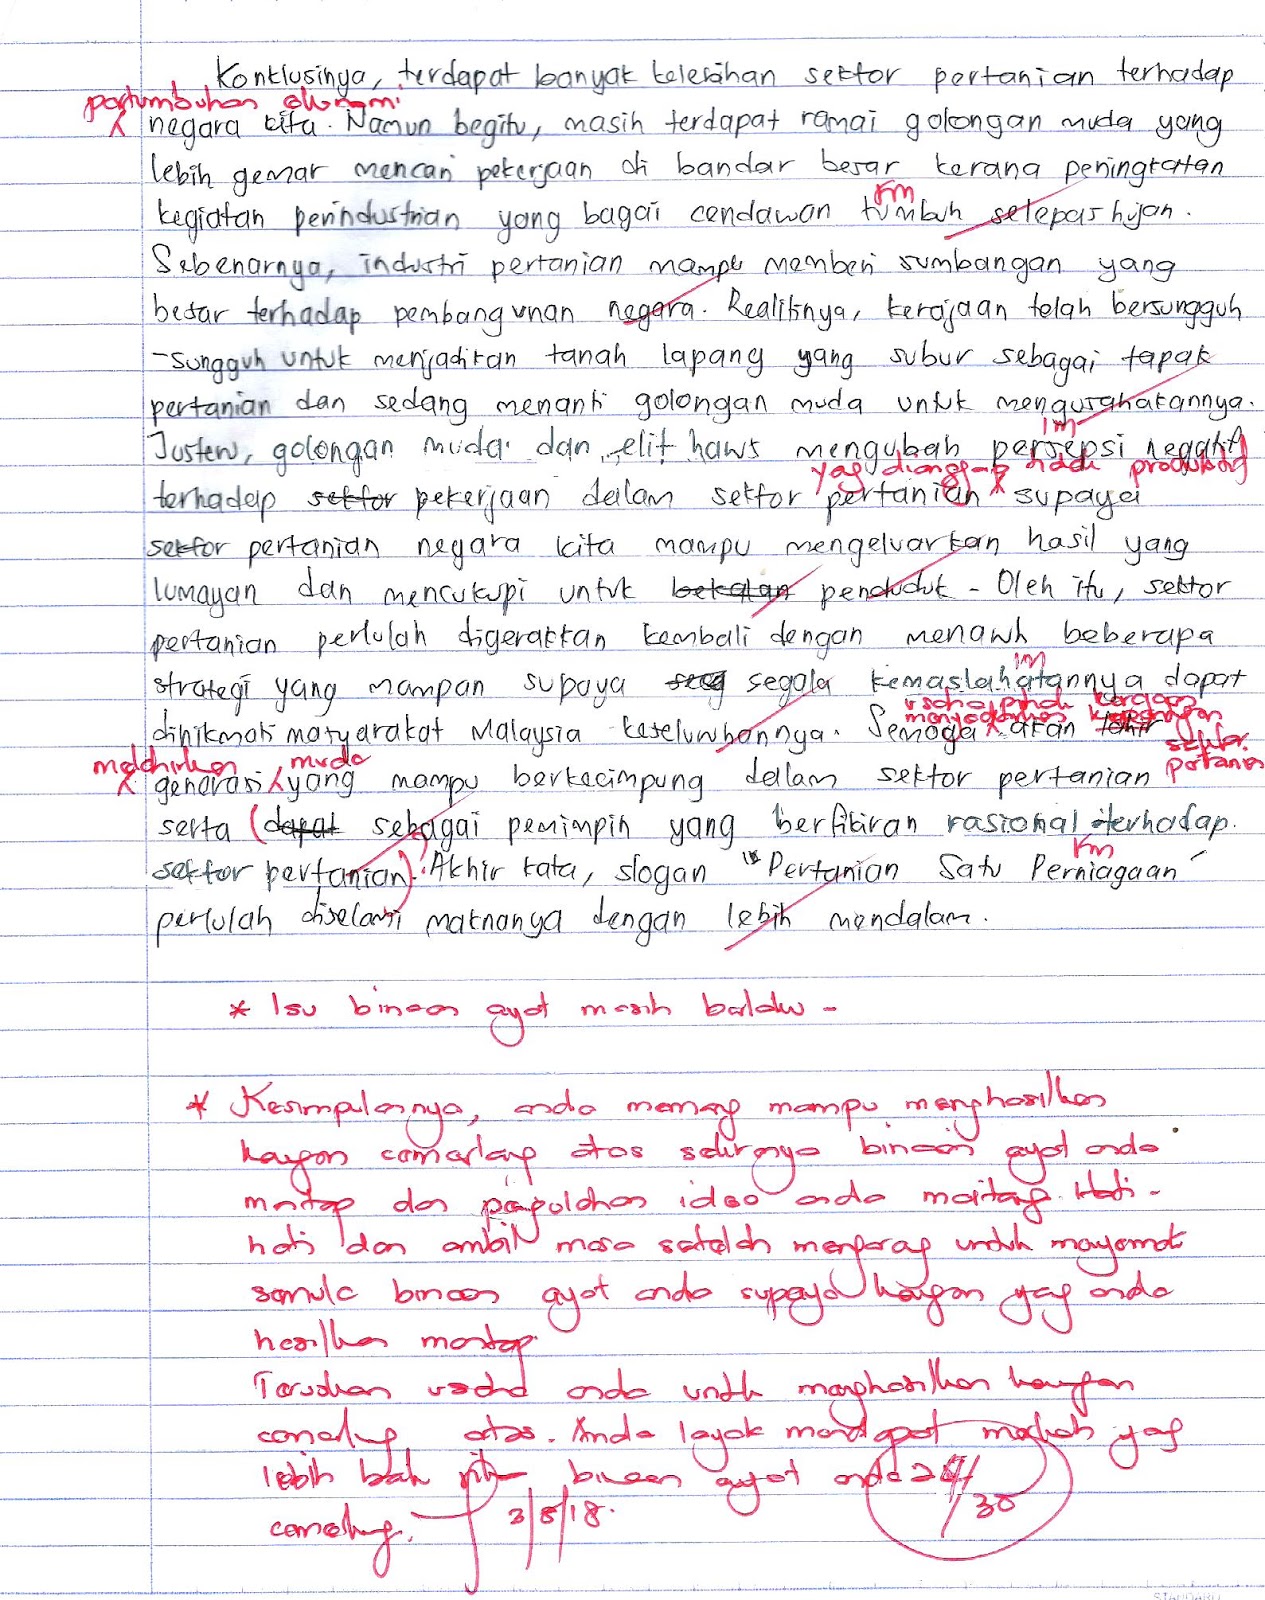 Konklusinya, terdapat banyak kelebihan sektor pertanian terhadap
pertumbuhan ekonomi
negara kita. Namun begitu, masih terdapat ramai golongan muda yang
lebih gemar mencari pekerjaan di bandar besar kerana peningkatan
km
kegiatan perindustrian yang bagai cendawan tumbuh selepas hujan.
Sebenarnya, industri pertanian mampu memberi sumbangan yang
besar terhadap pembangunan negara. Realitinya, kerajaan telah bersungguh
-sungguh untuk menjadikan tanah lapang yang subur sebagai tapak
pertanian dan sedang menanti golongan muda untuk mengusahakannya.
im
Justeru, golongan muda dan elit harus mengubah persepsi negatif
yag dianggap produktif
terhadap sektor pekerjaan dalam sektor pertanian supaya
sektor pertanian negara kita mampu mengeluarkan hasil yang
lumayan dan mencukupi untuk bekalan penduduk. Oleh itu, sektor
pertanian perlulah digerakkan kembali dengan menaruh beberapa
im
strategi yang mampan supaya segala kemaslahatannya dapat
usaha pihak kerajaan
menyedarkan kepentingan
dinikmati masyarakat Malaysia keseluruhannya. Semoga akan lahir
sektor
pertanian
melahirkan muda
generasi yang mampu berkecimpung dalam sektor pertanian
serta (dapat sebagai pemimpin yang berfikiran rasional terhadap
km
sektor pertanian). Akhir kata, slogan "Pertanian Satu Perniagaan"
perlulah diselami maknanya dengan lebih mendalam.
* Isu binaan ayat masih berlaku -
* Kesimpulannya, anda memang mampu menghasilkan
karangan cemerlang atas sekiranya binaan ayat anda
mantap dan pengolahan idea anda matang. Hati-
hati dan ambil masa setelah mengarang untuk menyemak
semula binaan ayat anda supaya karangan yag anda
hasilkan mantap.
Teruskan usaha anda untuk menghasilkan karangan
cemerlang atas. Anda layak mendapat markah yag
lebih baik jika binaan ayat anda
cemerlang.
3/8/18.
24/30